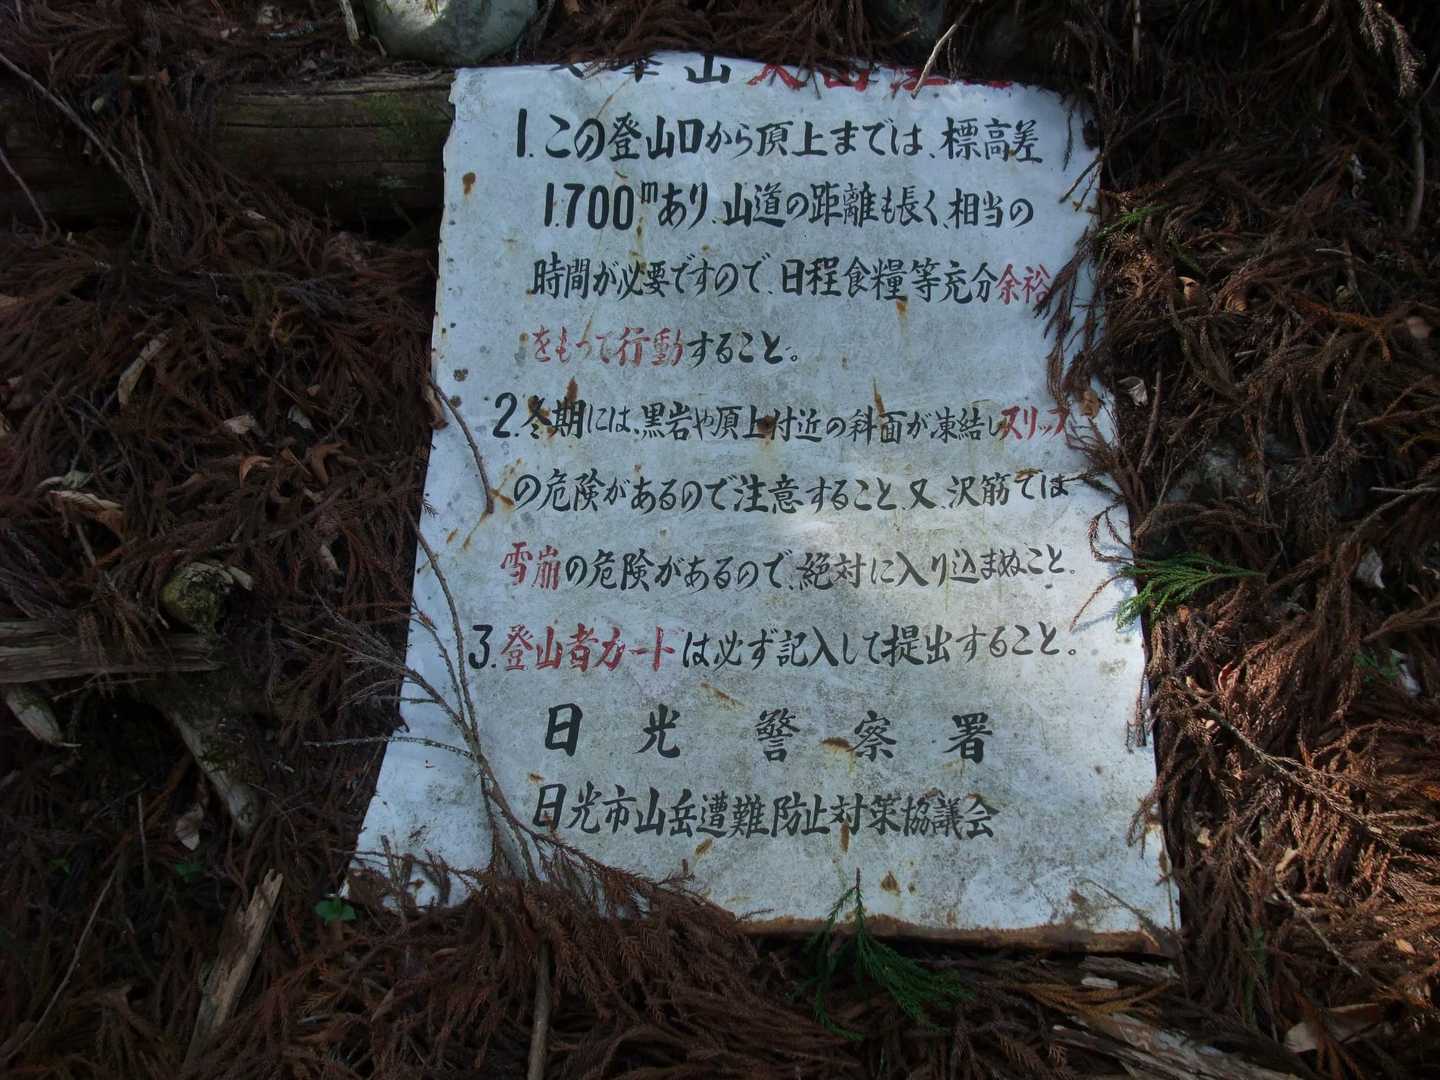 山
1.この登山口から頂上までは、標高差
1.700mあり、山道の距離も長く、相当の
時間が必要ですので、日程食糧等充分余裕
をもって行動すること。
2.冬期には、黒岩や頂上付近の斜面が凍結しスリップ
の危険があるので注意すること、又、沢筋では
雪崩の危険があるので、絶対に入り込まぬこと。
3.登山者カードは必ず記入して提出すること。
日光警察署
日光市山岳遭難防止対策協議会